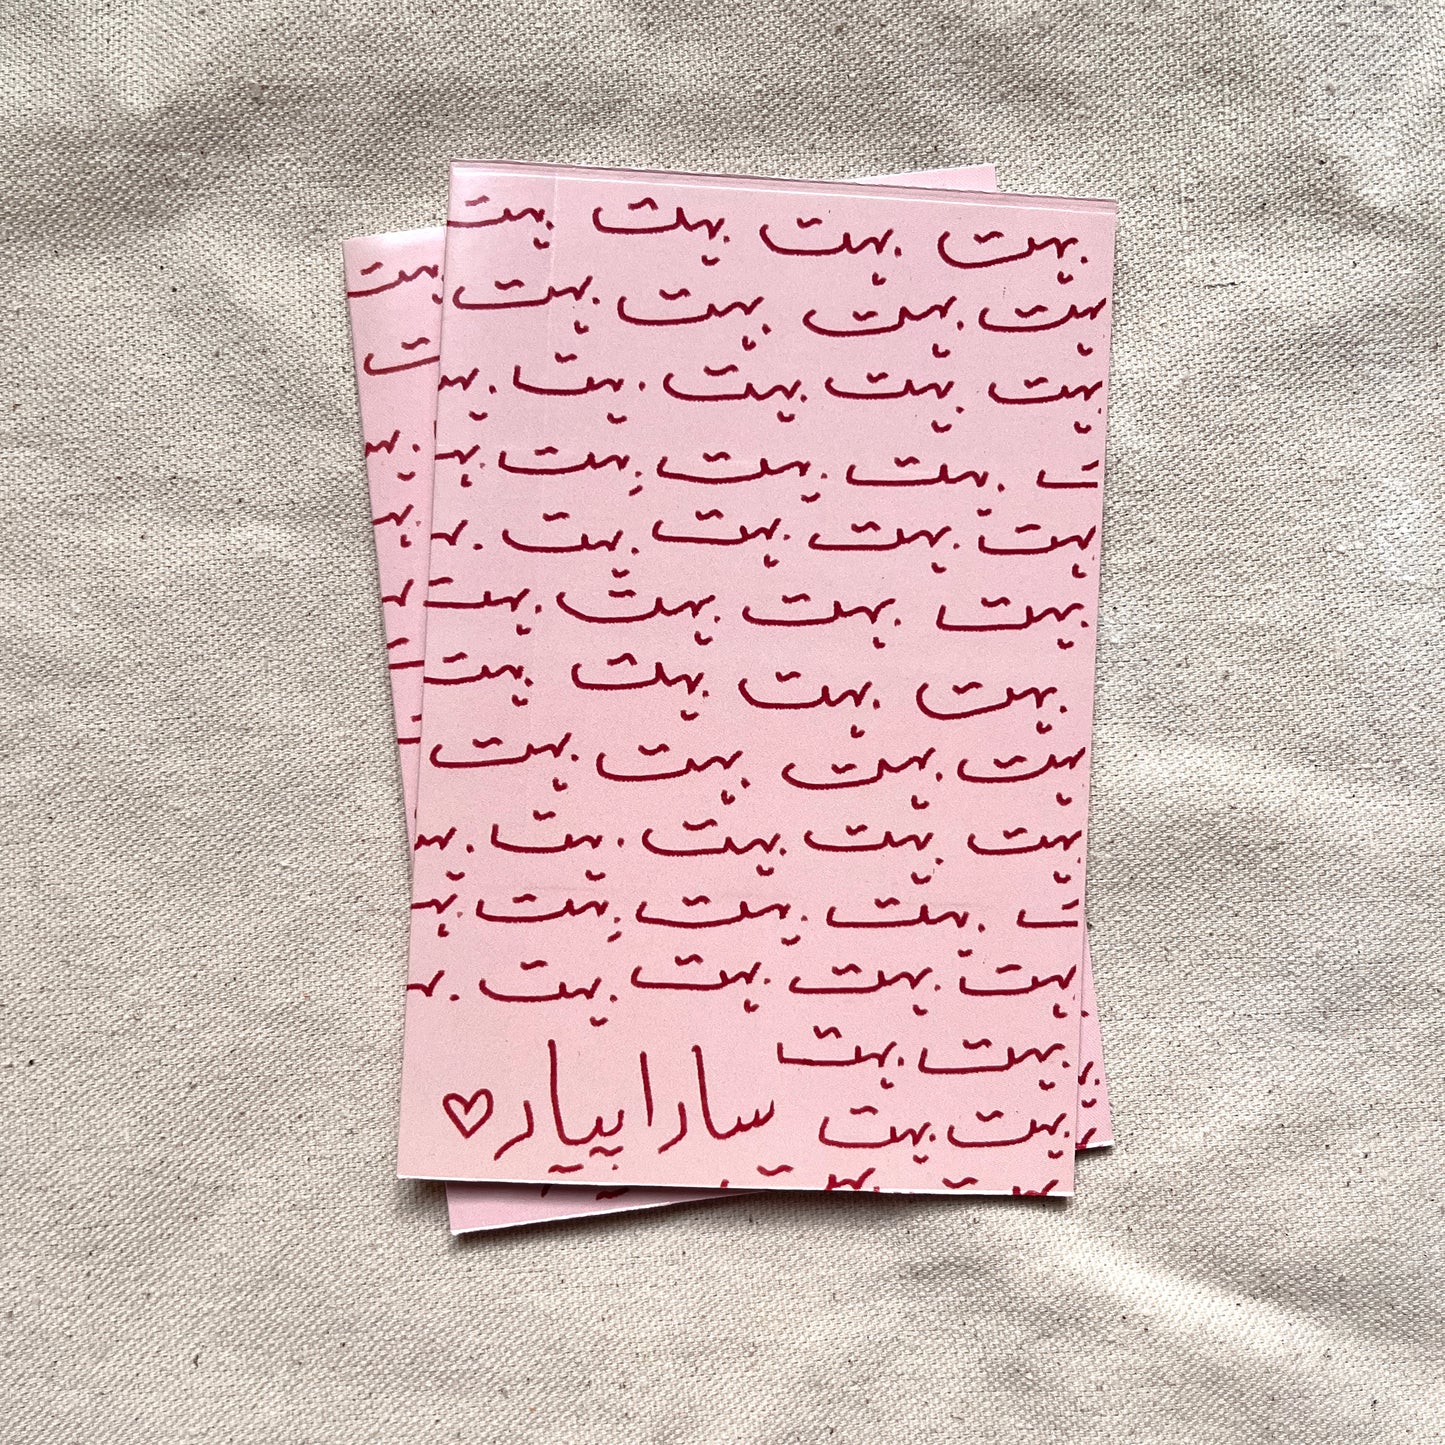 بہت بہت بہت بہت
بہت بہت بہت بہت
بہت بہت بہت بہت
بہت بہت بہت
بہت بہت بہت بہت
بہت بہت بہت بہت
بہت بہت بہت بہت
بہت بہت بہت بہت
بہت بہت بہت بہت
بہت بہت بہت
بہت بہت بہت بہت
بہت بہت
بہت بہت سارا پیار ♡